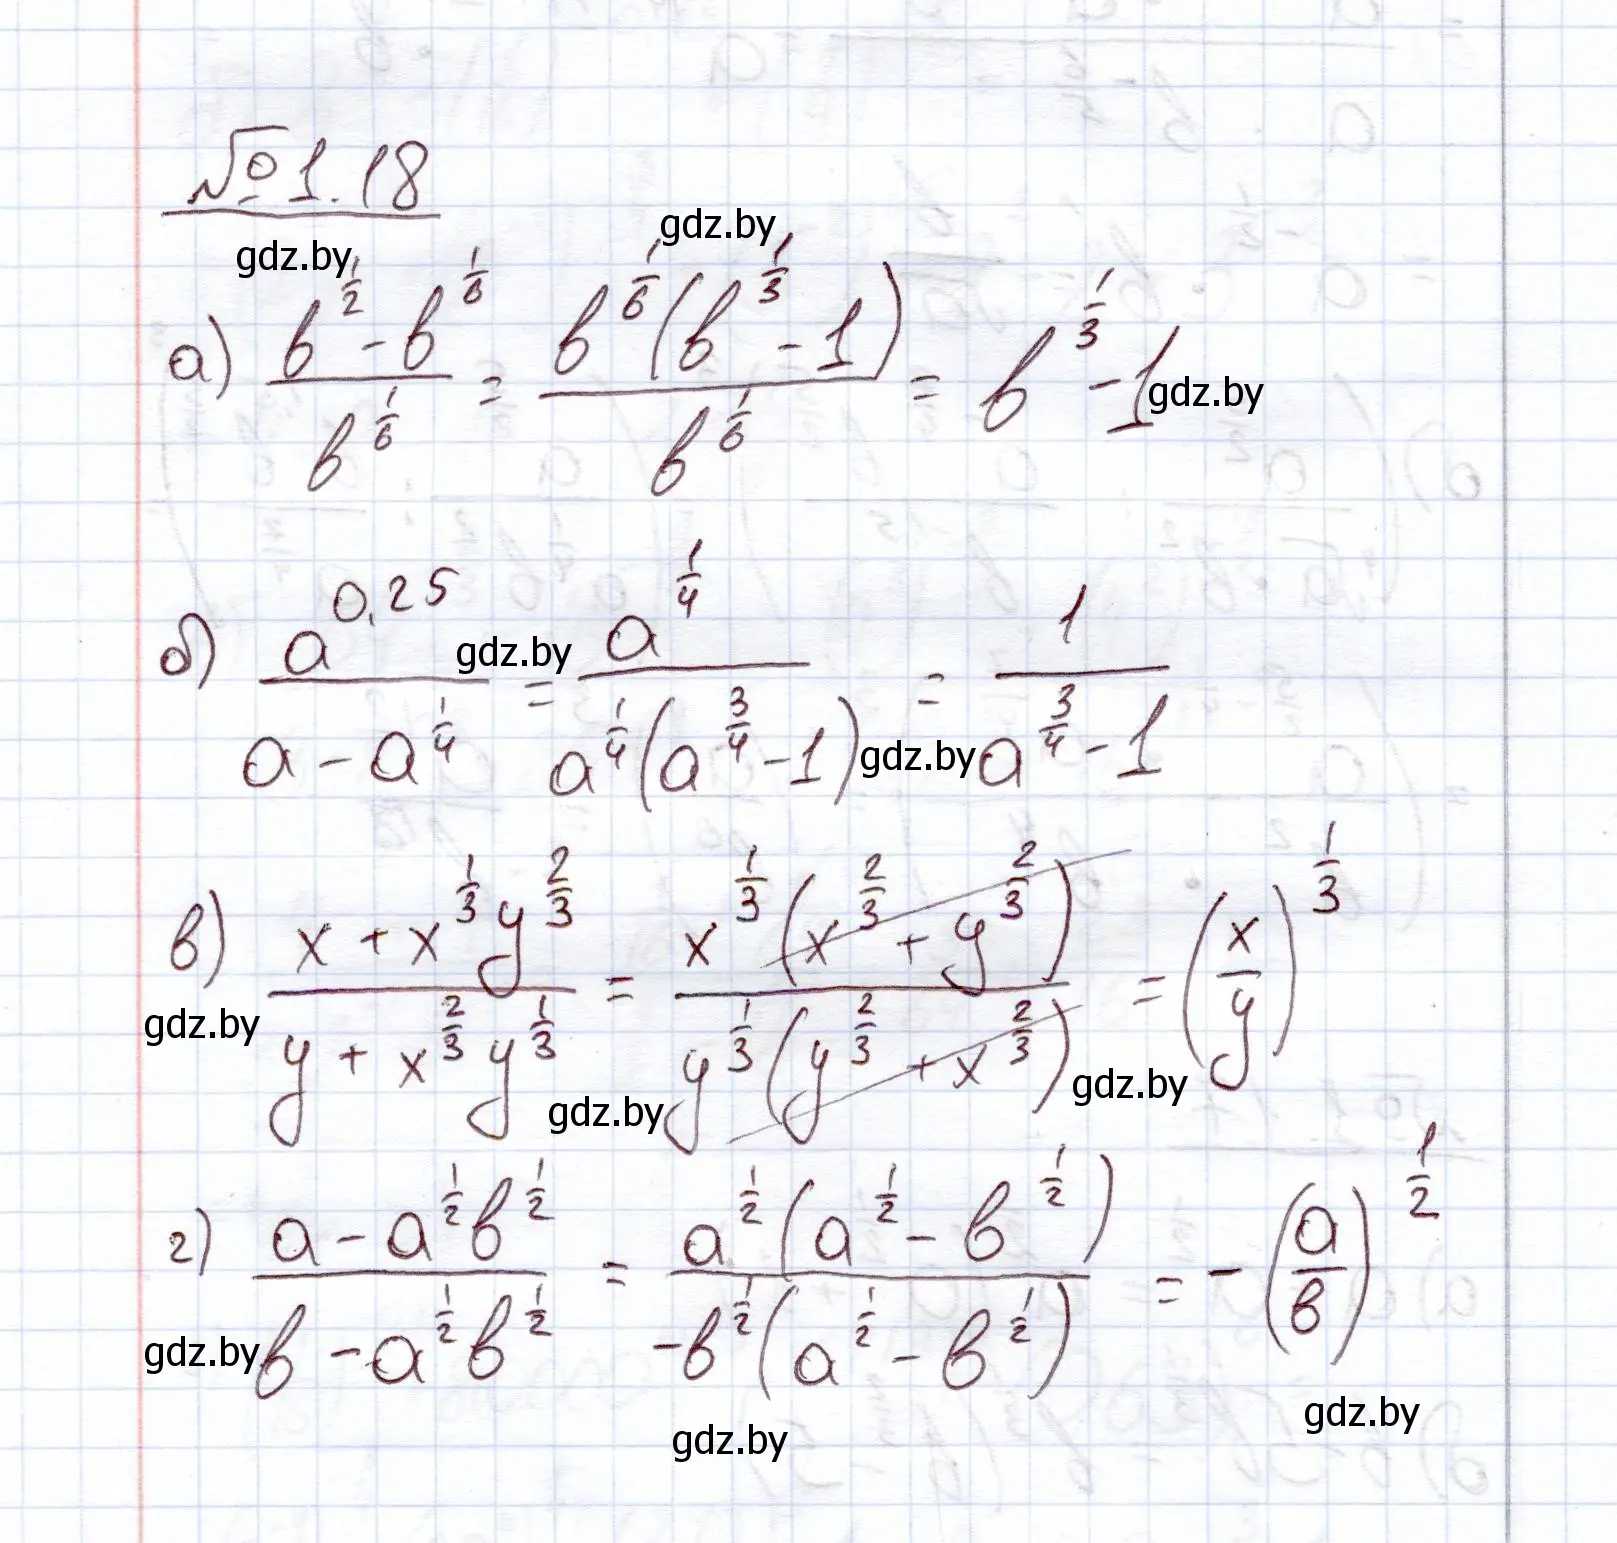 №1.18
gdz.by gdz.by
а) (b^(1/2) - b^(1/6))/(b^(1/6)) = (b^(1/6)(b^(1/3) - 1))/(b^(1/6)) = b^(1/3) - 1 gdz.by
б) (a^(0,25))/(a - a^(1/4)) = (a^(1/4))/(a^(1/4)(a^(3/4) - 1)) = 1/(a^(3/4) - 1)
gdz.by gdz.by
в) (x + x^(1/3) y^(2/3))/(y + x^(2/3) y^(1/3)) = (x^(1/3)(x^(2/3) + y^(2/3)))/(y^(1/3)(y^(2/3) + x^(2/3))) = (x/y)^(1/3)
gdz.by gdz.by gdz.by
г) (a - a^(1/2) b^(1/2))/(b - a^(1/2) b^(1/2)) = (a^(1/2)(a^(1/2) - b^(1/2)))/(-b^(1/2)(a^(1/2) - b^(1/2))) = -(a/b)^(1/2)
gdz.by gdz.by gdz.by